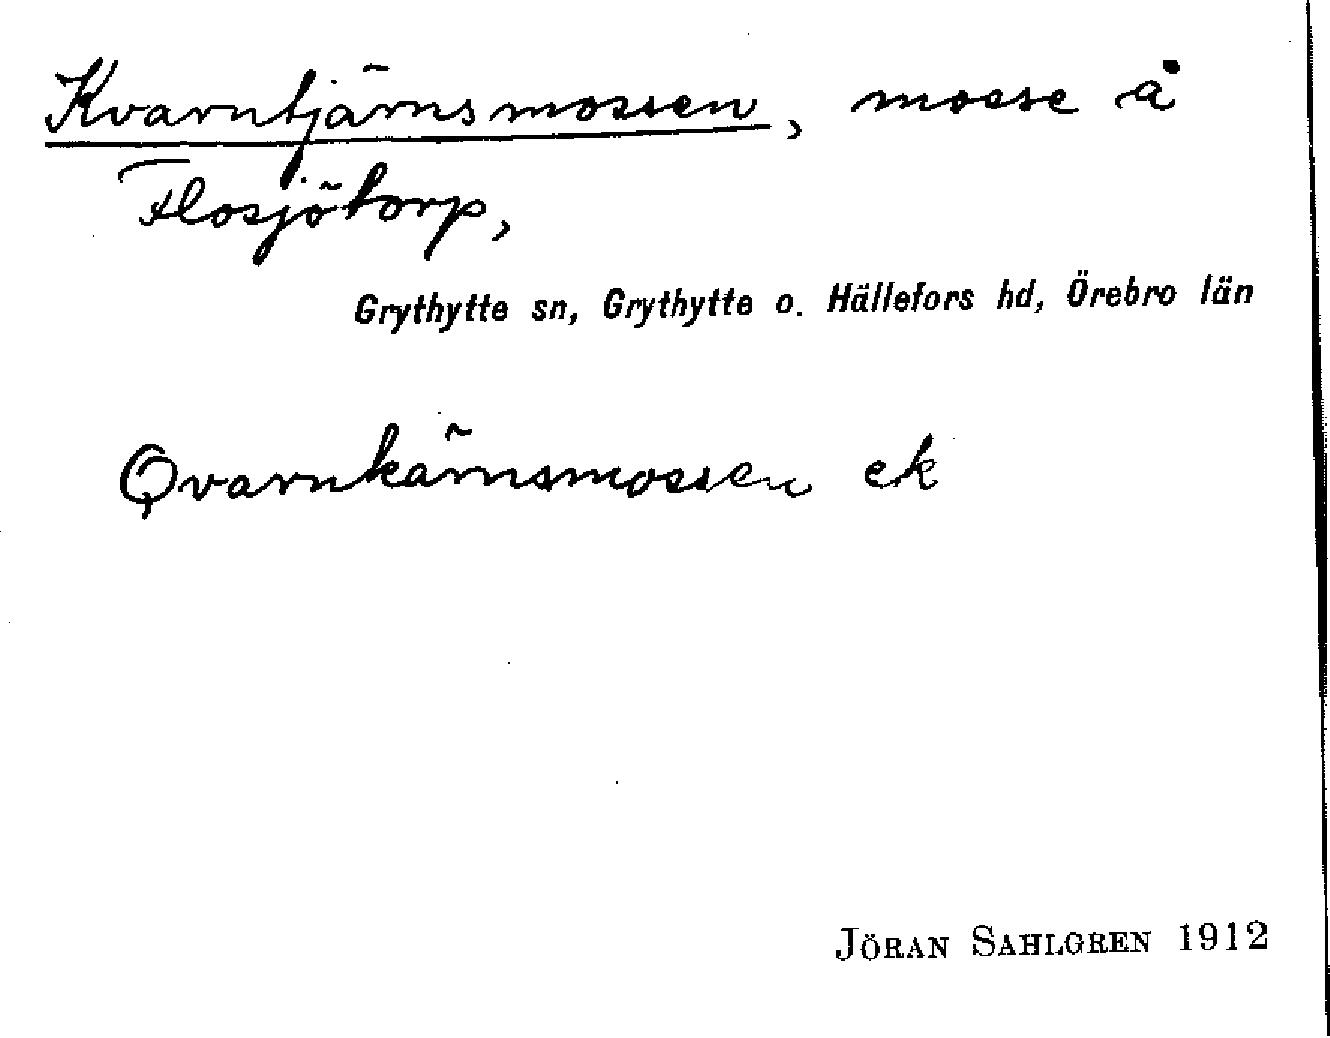 Kvarntjärnsmossen, mosse å
Flosjötorp,
Grythytte sn, Grythytte o. Hällefors hd, Örebro län
Qvarnkärnsmossen ek
JÖRAN SAHLGREN 1912